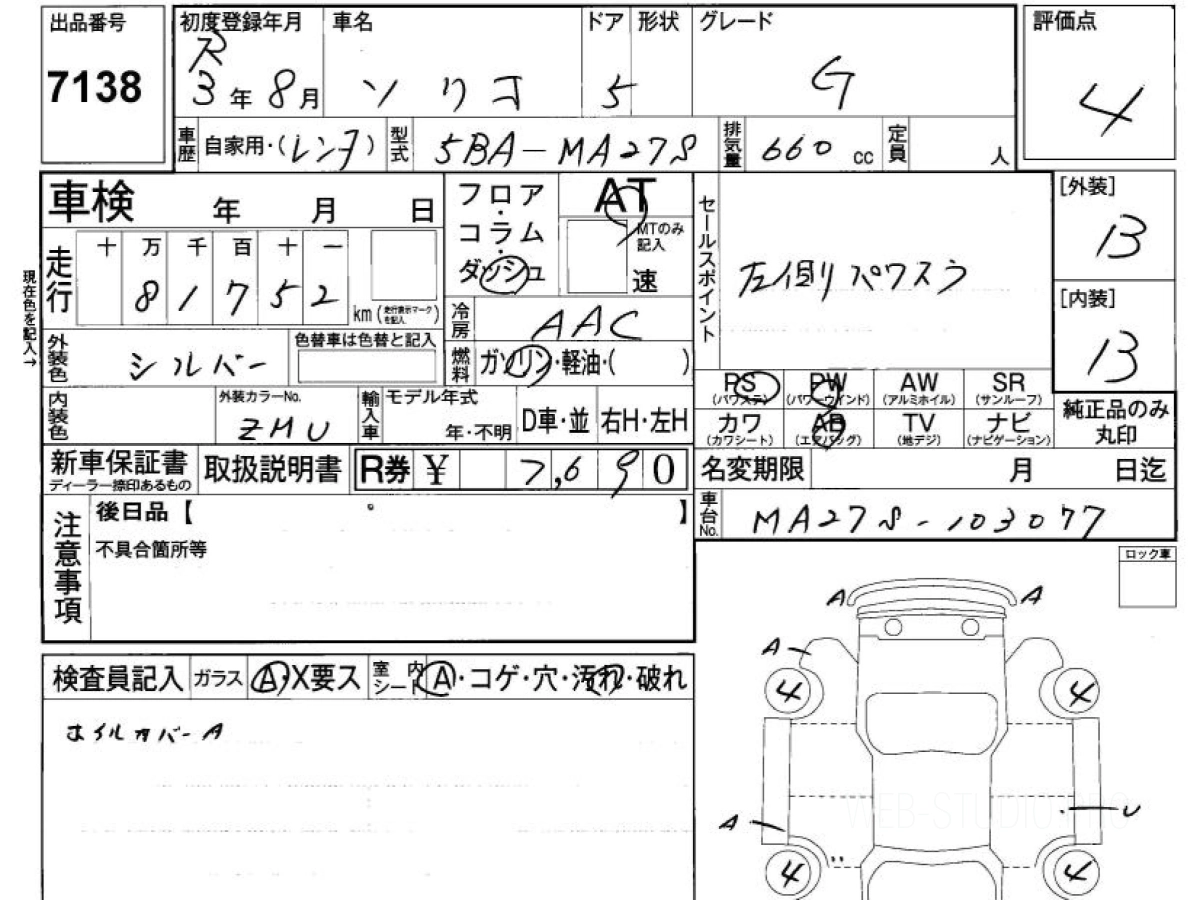 出品番号
7138
初度登録年月
R
3年8月
車名
ソリオ
ドア
5
形状
グレード
G
評価点
4
車歴
自家用・(レンタ)
型式
5BA-MA27S
排気量
660 cc
定員
人
車検 年 月 日
走行
十 万 千 百 十 一
8 1 7 5 2
km (走行表示マークを記入)
現在色を記入→
外装色
シルバー
色替車は色替と記入
内装色
外装カラーNo.
ZMU
輸入車
モデル年式
年・不明
D車・並
右H・左H
フロア
・
コラム
・
ダッシュ
AT
MTのみ
記入
速
冷房
AAC
燃料
ガソリン・軽油・( )
セールスポイント
左側リパワスラ
[外装]
B
[内装]
B
PS
(パワステ)
PW
(パワーウインド)
AW
(アルミホイル)
SR
(サンルーフ)
カワ
(カワシート)
AB
(エアバッグ)
TV
(地デジ)
ナビ
(ナビゲーション)
純正品のみ
丸印
新車保証書
ディーラー捺印あるもの
取扱説明書
R券 ¥ 7,690
名変期限 月 日迄
車台No.
MA27S-103077
注意事項
後日品【 】
不具合箇所等
ロック車
検査員記入
ガラス
A・X要ス
室内
シート
A・コゲ・穴・汚れ・破れ
ホイルカバーA
A A
A
4 4
A U
4 4
WEB-STUDIO.PRO